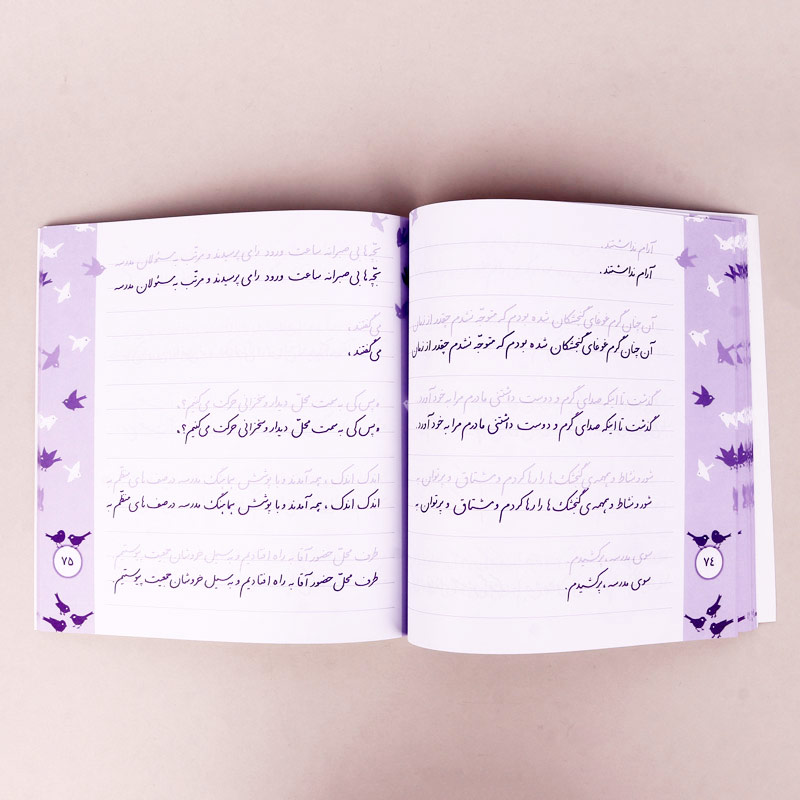 آرام نداشتند.
آرام نداشتند.
آن چنان گرم غوغای گنجشکان شده بودم که متوجّه نشدم چقدر از زمان
آن چنان گرم غوغای گنجشکان شده بودم که متوجّه نشدم چقدر از زمان
گذشت تا اینکه صدای گرم و دوست داشتنی مادرم مرا به خود آورد.
گذشت تا اینکه صدای گرم و دوست داشتنی مادرم مرا به خود آورد.
شور و نشاط و همهمه‌ی گنجشک ها را رها کردم و مشتاق و پرتوان به
شور و نشاط و همهمه‌ی گنجشک ها را رها کردم و مشتاق و پرتوان به
سوی مدرسه، پر کشیدم.
سوی مدرسه، پر کشیدم.
٧٤
بچّه ها بی صبرانه ساعت ورود را می پرسیدند و مرتّب به مسئولان مدرسه
بچّه ها بی صبرانه ساعت ورود را می پرسیدند و مرتّب به مسئولان مدرسه
می گفتند،
می گفتند،
«پس کی به سمت محلّ دیدار و سخنرانی حرکت می کنیم؟»
«پس کی به سمت محلّ دیدار و سخنرانی حرکت می کنیم؟»
اندک اندک، همه آمدند و با پوشش هماهنگ مدرسه در صف های منظّم به
اندک اندک، همه آمدند و با پوشش هماهنگ مدرسه در صف های منظّم به
طرف محلّ حضور آقا به راه افتادیم و به سیل خروشان جمعیت پیوستیم.
طرف محلّ حضور آقا به راه افتادیم و به سیل خروشان جمعیت پیوستیم.
٧٥